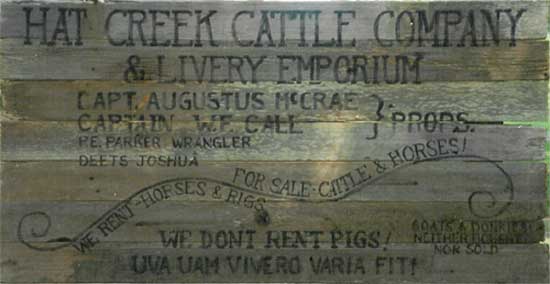 HAT CREEK CATTLE COMPANY
& LIVERY EMPORIUM
CAPT. AUGUSTUS McCRAE
CAPTAIN W.F. CALL } PROPS.
P.E. PARKER WRANGLER
DEETS JOSHUA
FOR SALE: CATTLE & HORSES!
WE RENT-HORSES & RIGS
GOATS & DONKIES
NEITHER
NOR SOLD
WE DONT RENT PIGS!
UVA UAM VIVERO VARIA FIT!